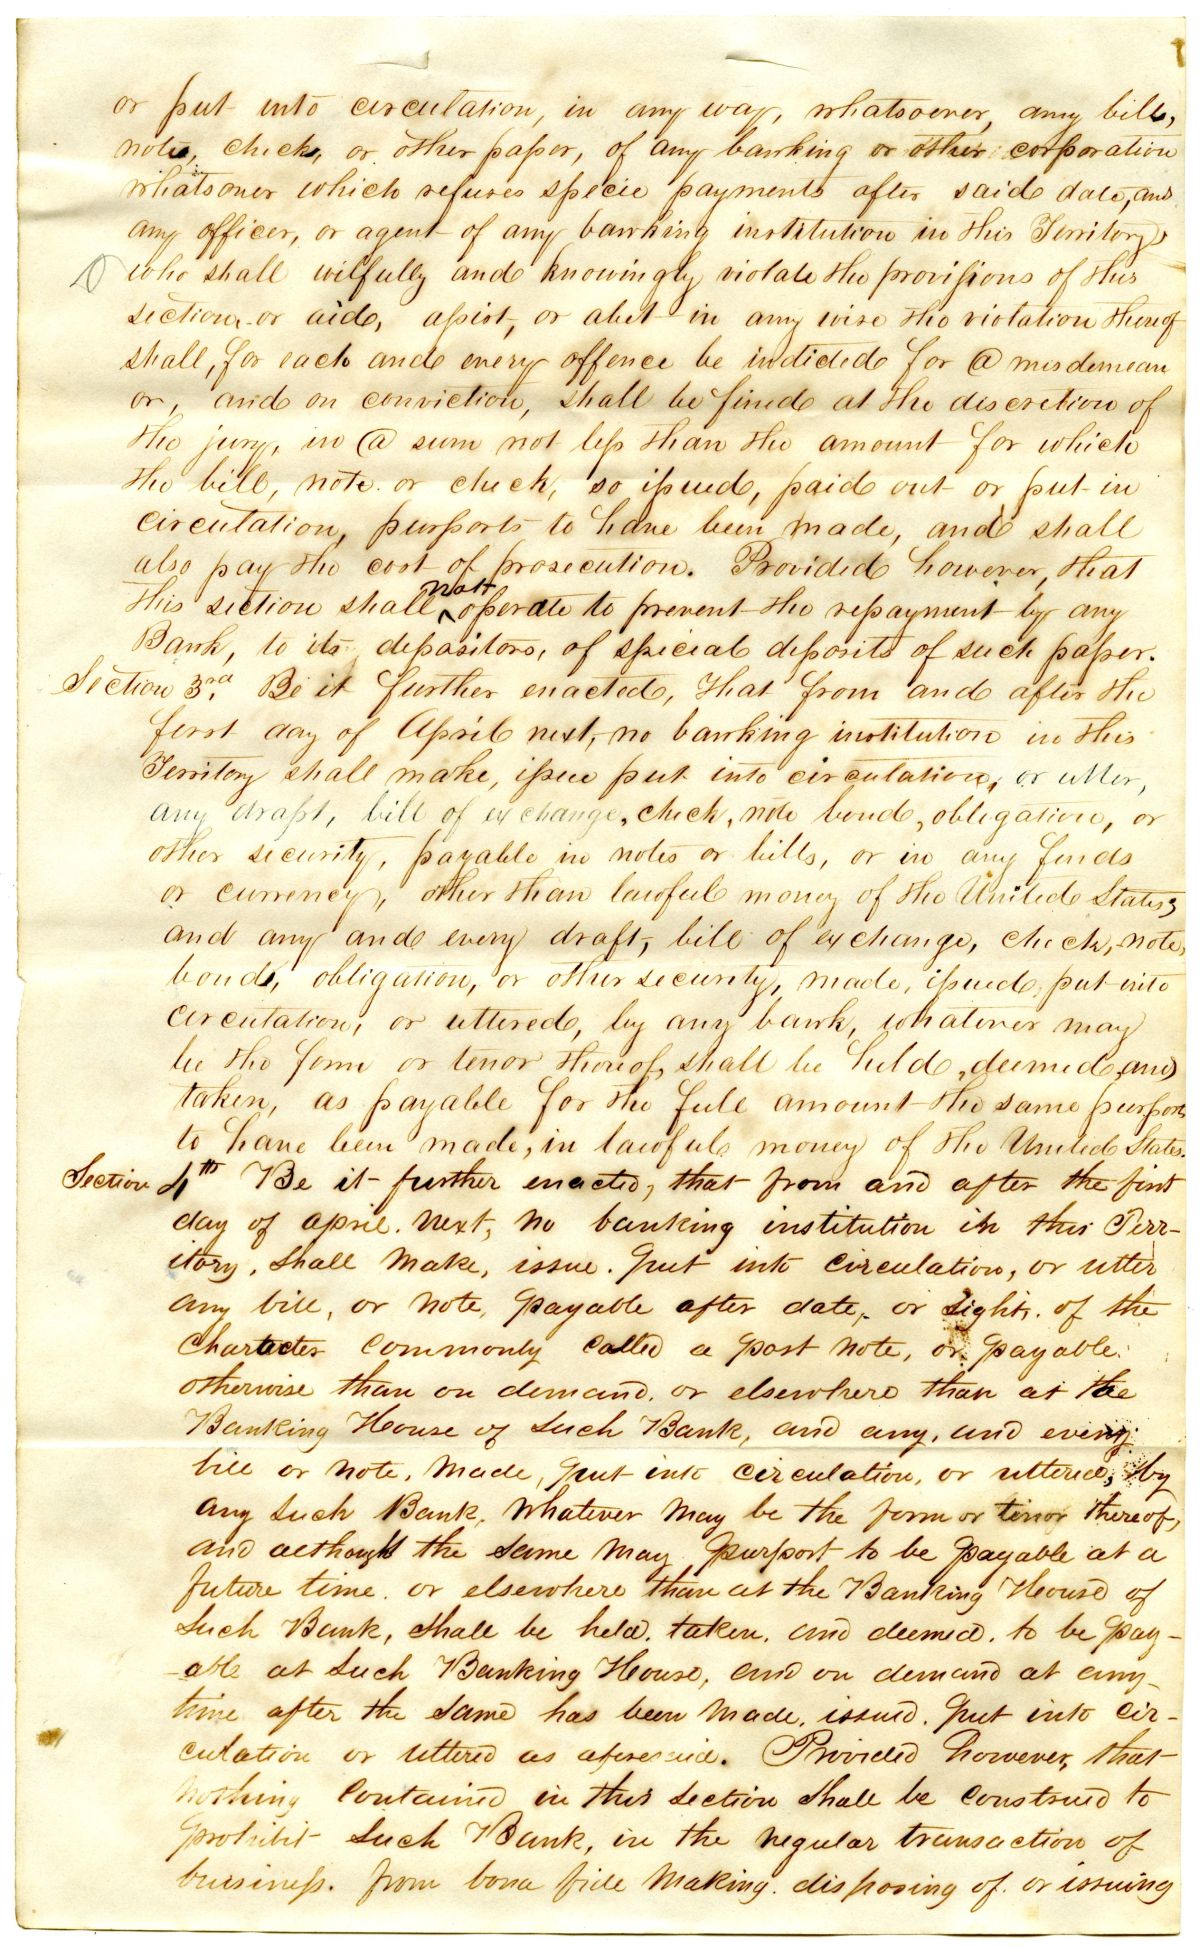 or put into circulation, in any way, whatsoever, any bill,
note, check, or other paper, of any banking or other corporation
whatsoever which refuses specie payments after said date, and
any officer, or agent of any banking institution in this Territory,
who shall wilfully and knowingly violate the provisions of this
section, or aid, assist, or abet in any wise the violation thereof
shall, for each and every offence be indicted for a misdemean
or, and on conviction, shall be fined at the discretion of
the jury, in a sum not less than the amount for which
the bill, note or check, so issued, paid out or put in
circulation, purports to have been made, and shall
also pay the cost of prosecution. Provided however, that
this section shall not operate to prevent the repayment by any
Bank, to its depositors, of special deposits of such paper.
Section 3rd. Be it further enacted, that from and after the
first day of April next, no banking institution in this
Territory shall make, issue put into circulation, or utter,
any draft, bill of exchange, check, note bond, obligation, or
other security, payable in notes or bills, or in any funds
or currency, other than lawful money of the United States;
and any and every draft, bill of exchange, check, note,
bond, obligation, or other security, made, issued, put into
circulation, or uttered, by any bank, whatever may
be the form or tenor thereof, shall be held, deemed, and
taken, as payable for the full amount the same purports
to have been made, in lawful money of the United States.
Section 4th Be it further enacted, that from and after the first
day of april next, no banking institution in this Terr-
itory, shall make, issue. put into circulation, or utter
any bill, or note, payable after date, or sight. of the
character commonly called a post note, or payable
otherwise than on demand. or elsewhere than at the
Banking House of such Bank, and any, and every
bill or note, made, put into circulation, or uttered, by
any such Bank, whatever may be the form or tenor thereof,
and although the same may purport to be payable at a
future time. or elsewhere than at the Banking House of
such Bank, shall be held. taken. and deemed. to be pay-
-able at such Banking House, and on demand at any
time after the same has been made, issued. put into cir-
culation or uttered as aforesaid. Provided however, that
nothing contained in this section shall be construed to
prohibit such Bank, in the regular transaction of
buisiness. from bona fide making. disposing of. or issuing